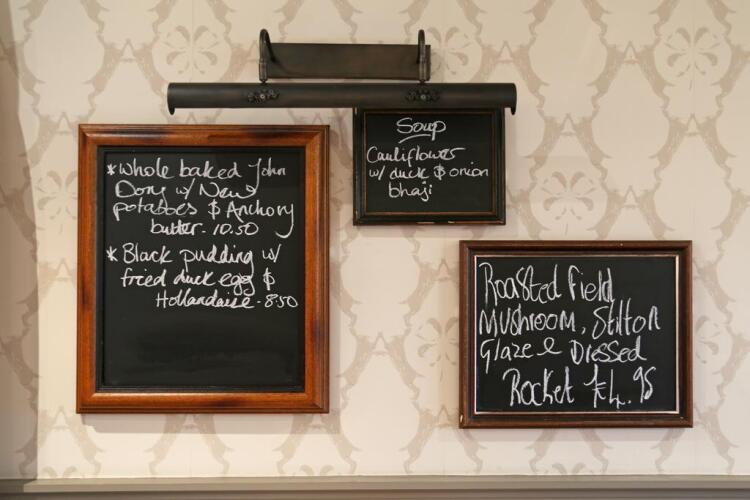 * Whole baked John
Dory w/ New
potatoes & Anchovy
butter - 10.50
* Black pudding w/
fried duck egg &
Hollandaise - 8.50
Soup
Cauliflower
w/ duck & onion
bhaji
Roasted Field
Mushroom, Stilton
Glaze & Dressed
Rocket £4.95